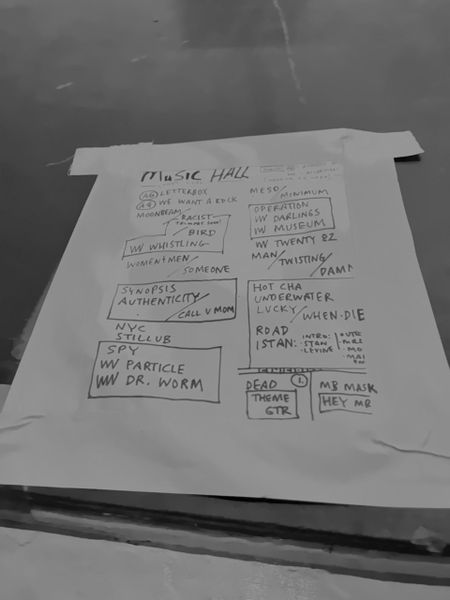 MUSIC HALL
LETTERBOX
WE WANT A ROCK
MOONBEAM/
RACIST
/BIRD
W/ WHISTLING
WOMEN+MEN/
/SOMEONE
SYNOPSIS
AUTHENTICITY/
/CALL U MOM
NYC
STILLUB
SPY
W/ PARTICLE
W/ DR. WORM
MESO/
/MINIMUM
OPERATION
W/ DARLINGS
W/ MUSEUM
W/ TWENTY 82
MAN/
/TWISTING/
/DAM
HOT CHA
UNDERWATER
LUCKY/
/WHEN·DIE
ROAD
ISTAN:
INTRO:
·STAN
·LEVINE
DEAD 1.
THEME
GTR
MB MASK
HEY MB